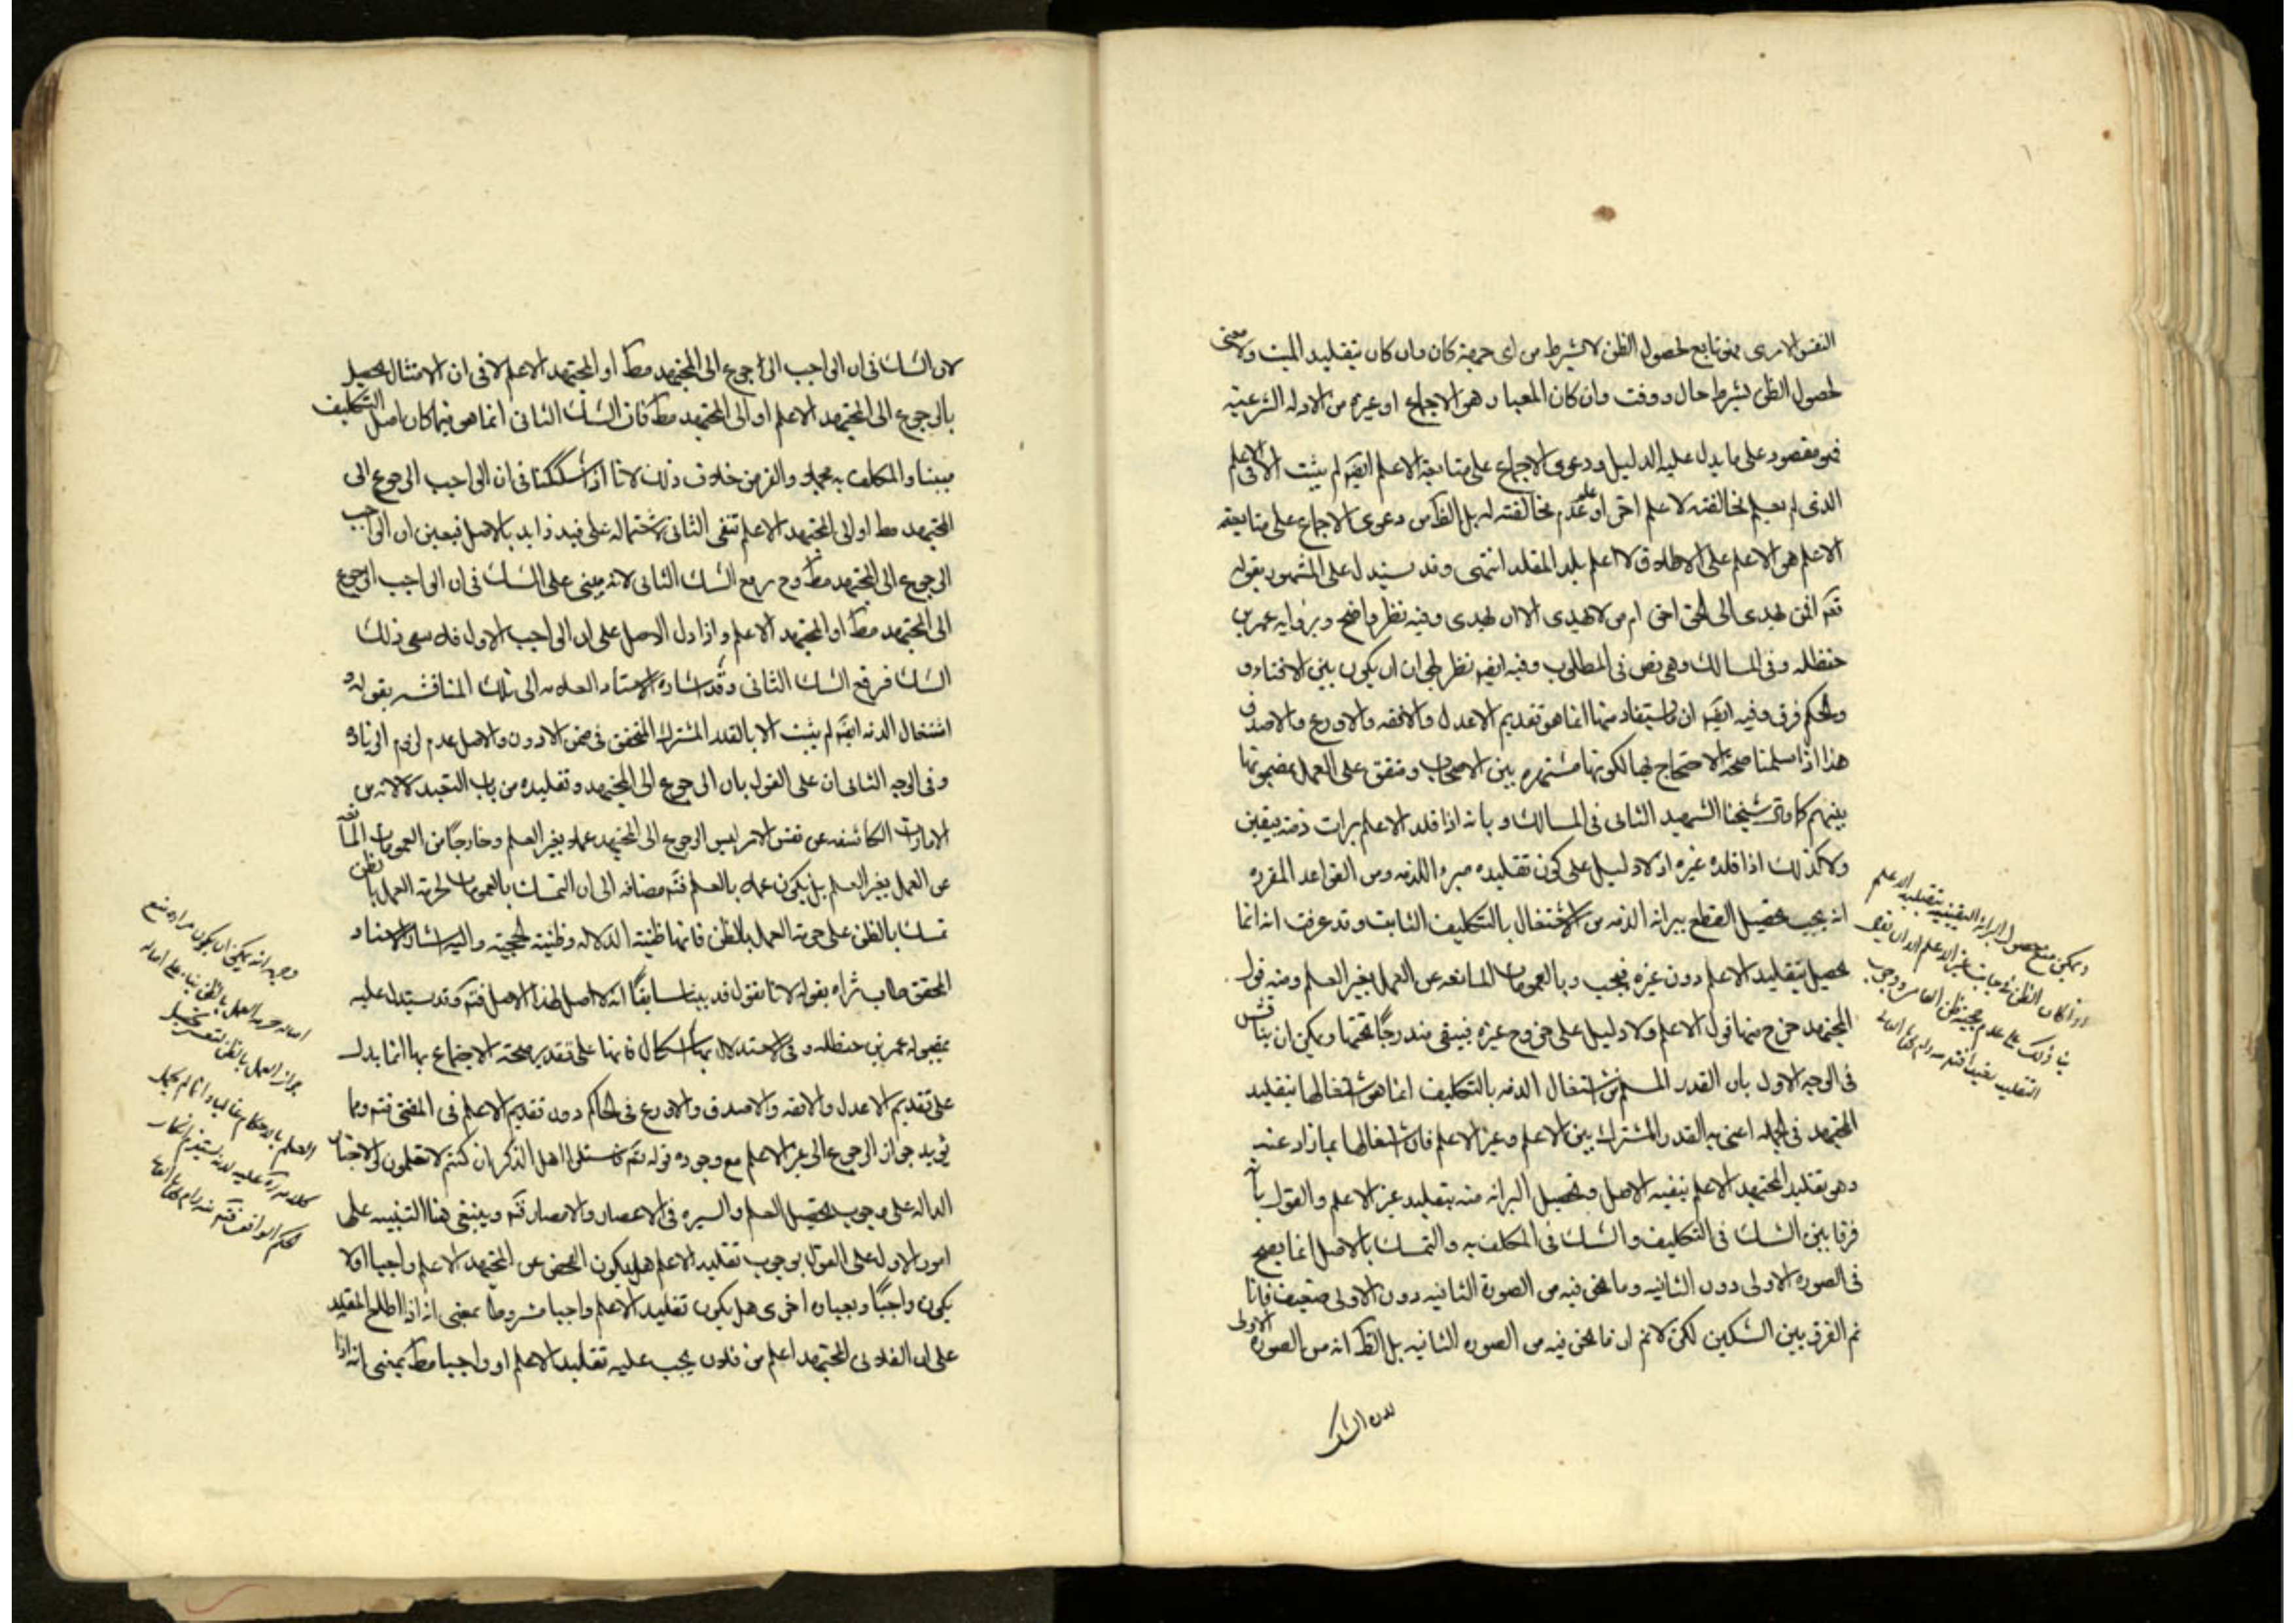 النفس الامرى فهو تابع لحصول الظن لا بشرط من اى جهة كان وان كان بتقليد الميت ولا معنى
لحصول الظن بشرط حال ووقت وان كان المعيار هو الاجماع او غيره من الادلة الشرعية
فهو مقصور على ما يدل عليه الدليل ودعوى الاجماع على متابعة الاعلم ايضا لم يثبت الا فى الاعلم
الذى لم يعلم مخالفته لاعلم اخر او علم عدم مخالفته له بل الظ من دعوى الاجماع على متابعة
الاعلم هو الاعلم على الاطلاق لا اعلم بلد المقلد انتهى وقد يستدل على المشهور بقوله
تعم افمن يهدى الى الحق احق ام من لا يهدى الا ان يهدى وفيه نظر واضح وبرواية عمر بن
حنظله وفى المسالك وهى نص فى المطلوب وفيه ايضا نظر لجواز ان يكون بين الافتاء و
الحكم فرق وفيه ايضا ان ما يستفاد منها انما هو تقديم الاعدل والافقه والاورع والاصدق
هذا اذا سلمنا صحة الاحتجاج بها لكونها مشتهره بين الاصحاب ومتفق على العمل بمضمونها
بينهم كما قال شيخنا الشهيد الثانى فى المسالك وبانه اذا قلد الاعلم برات ذمته بيقين
ولا كذلك اذا قلد غيره اذ لا دليل على كون تقليده مبرء للذمه ومن القواعد المقرره
انه يجب تحصيل القطع ببرائة الذمه من الاشتغال بالتكليف الثابت وقد عرفت انه انما
يحصل بتقليد الاعلم دون غيره فيجب وبالعمومات المانعه عن العمل بغير العلم ومنه قول
المجتهد خرج منها قول الاعلم ولا دليل على خروج غيره فيبقى مندرجا تحتها ويمكن ان يناقش
فى الوجه الاول بان القدر المسلم من اشتغال الذمه بالتكليف انما هو اشتغالها بتقليد
المجتهد فى الجمله اعنى به القدر المشترك بين الاعلم وغير الاعلم فان اشتغالها بما زاد عنه
وهو تقليد المجتهد الاعلم ينفيه الاصل وتحصيل البرائه منه بتقليد غير الاعلم والقول بان
فرقا بين الشك فى التكليف والشك فى المكلف به والتمسك بالاصل انما يصح
فى الصورة الاولى دون الثانيه وما نحن فيه من الصورة الثانيه دون الاولى ضعيف فانا
نم الفرق بين الشكين لكن لانم ان ما نحن فيه من الصوره الثانيه بل الظ انه من الصورة الاولى
لان الشك
ويمكن منع حصول البرائة اليقينية بتقليد الاعلم
لان الشك فى ان الواجب الرجوع الى المجتهد مط او المجتهد الاعلم لا فى ان الامتثال يحصل
بالرجوع الى المجتهد الاعلم او الى المجتهد مط فان الشك الثانى انما هو فيما كان اصل التكليف
مبينا والمكلف به مجملا والفرض خلاف ذلك لانا اذا شككنا فى ان الواجب الرجوع الى
المجتهد مط او الى المجتهد الاعلم ننفى الثانى لاشتماله على قيد زايد بالاصل فيعين ان الواجب
الرجوع الى المجتهد مط وح يرفع الشك الثانى لانه مبنى على الشك فى ان الواجب الرجوع
الى المجتهد مط او المجتهد الاعلم واذا دل الاصل على ان الواجب الاول فلا يبقى ذلك
الشك فرفع الشك الثانى وقد اشار الاستاد العلامه الى تلك المناقشه بقوله و
اشتغال الذمه ايضا لم يثبت الا بالقدر المشترك المتحقق فى ضمن الادون والاصل عدم لزوم الزيادة
وفى الوجه الثانى ان على القول بان الرجوع الى المجتهد وتقليده من باب التعبد لا لانه من
الامارات الكاشفه عن نفس الامر ليس الرجوع الى المجتهد عملا بغير العلم وخارجا من العمومات المانعه
عن العمل بغير العلم بل يكون عملا بالعلم فتم مضافه الى ان التمسك بالعمومات لحرمة العمل بالظن
تمسك بالظن على حرمة العمل بالظن فانها ظنية الدلاله وظنية الحجية واليه اشار الاستاد
المحقق طاب ثراه بقوله لانا نقول قد بينا سابقا انه لا اصل لهذا الاصل فتم وقد يستدل عليه
بمقبولة عمر بن حنظله وفى الاستدلال بها اشكال فانها على تقدير صحة الاحتجاج بها انما يدل
على تقديم الاعدل والافقه والاصدق والاورع فى الحاكم دون تقديم الاعلم فى المفتى فتم ومما
يؤيد جواز الرجوع الى غير الاعلم مع وجوده قوله تعم فاسئلوا اهل الذكر ان كنتم لا تعلمون والاخبار
الداله على وجوب تحصيل العلم والسيره فى الاعصار والامصار فتم وينبغى هنا التنبيه على
امور الاول على القول بوجوب تقليد الاعلم هل يكون الفحص عن المجتهد الاعلم واجبا اولا
يكون واجبا وبعباره اخرى هل يكون تقليد الاعلم واجبا مشروطا بمعنى انه اذا اطلع المقلد
على ان الفلانى المجتهد اعلم من فلان يجب عليه تقليد الاعلم او واجبا مط بمعنى انه اذا
وجهه انه يمكن ان يكون مراده منع
اصالة حرمة العمل بالظن بناء على اصالة
جواز العمل بالظن